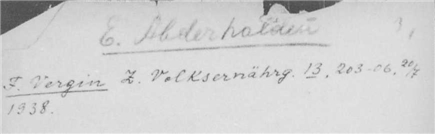 E. Abderhalden 3,
F. Vergin Z. Volksernährg. 13, 203-06, 20/7
1938.